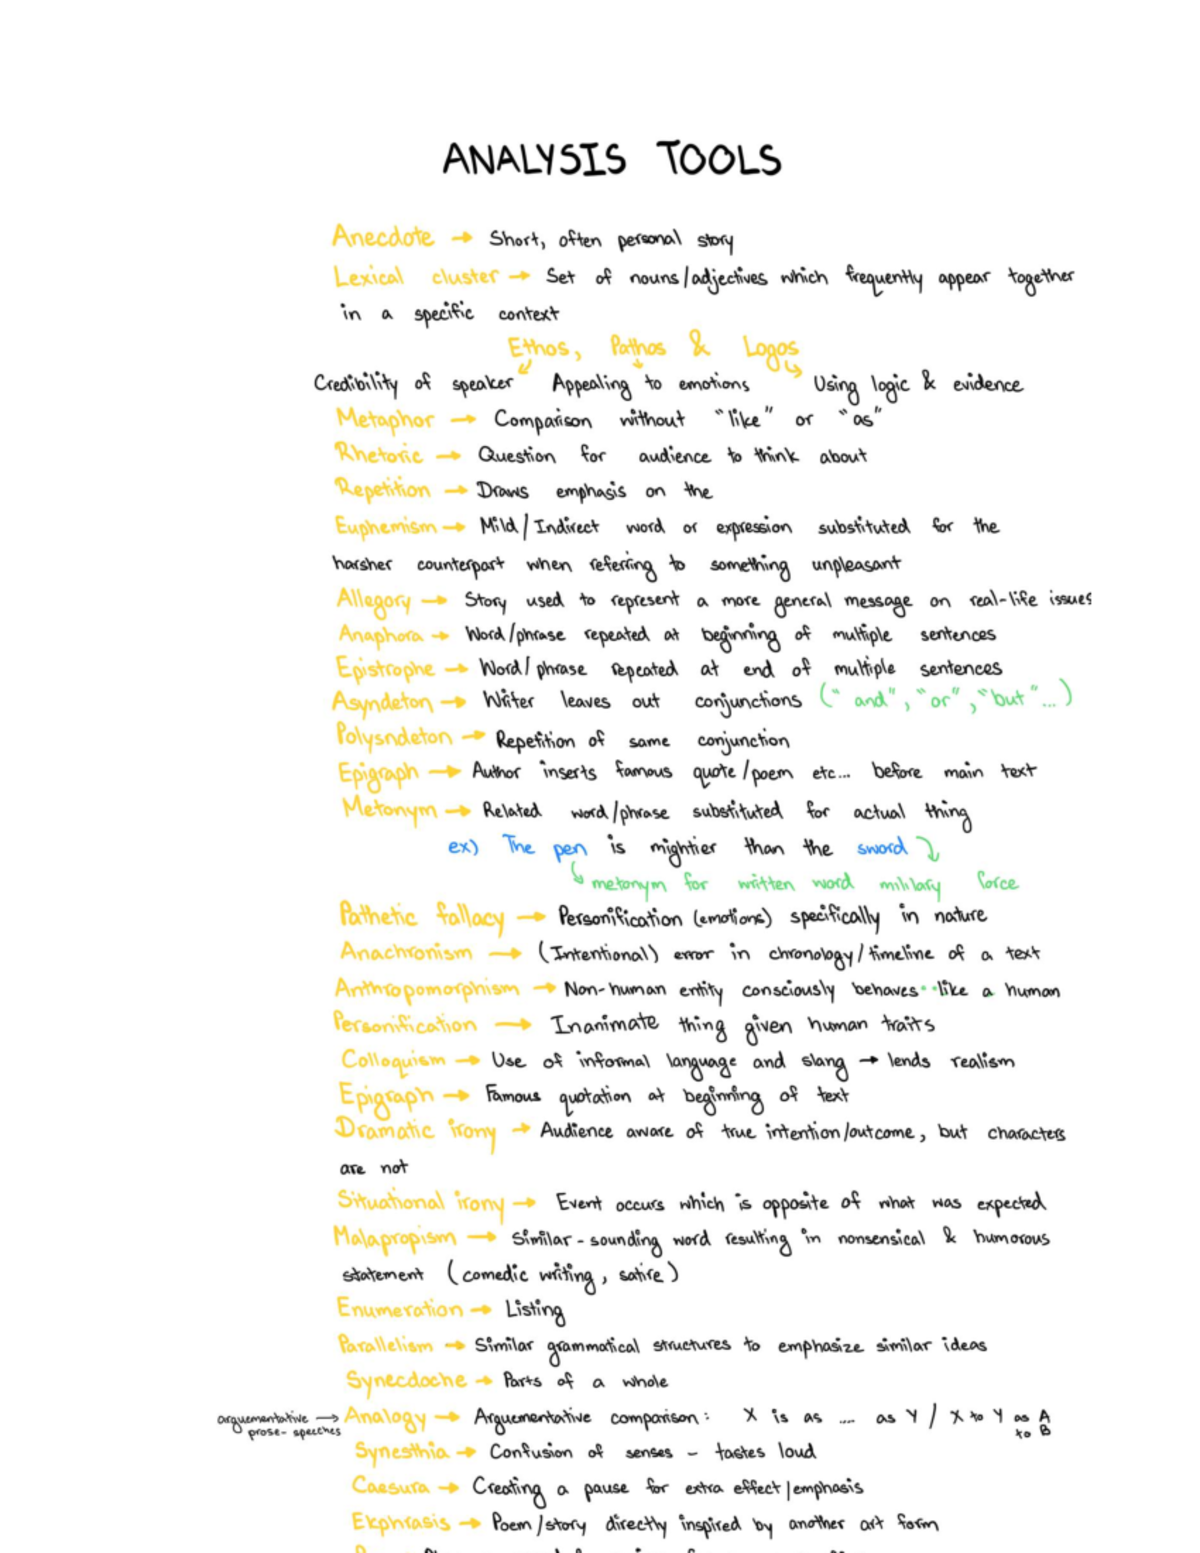 ANALYSIS TOOLS
Anecdote → Short, often personal story
Lexical cluster → Set of nouns/adjectives which frequently appear together
in a specific context
Ethos, Pathos & Logos
Credibility of speaker Appealing to emotions Using logic & evidence
Metaphor → Comparison without "like" or "as"
Rhetoric → Question for audience to think about
Repetition → Draws emphasis on the
Euphemism → Mild/Indirect word or expression substituted for the
harsher counterpart when referring to something unpleasant
Allegory → Story used to represent a more general message on real-life issues
Anaphora → Word/phrase repeated at beginning of multiple sentences
Epistrophe → Word/phrase repeated at end of multiple sentences
Asyndeton → Writer leaves out conjunctions ("and", "or", "but"...)
Polysndeton → Repetition of same conjunction
Epigraph → Author inserts famous quote/poem etc... before main text
Metonym → Related word/phrase substituted for actual thing
ex) The pen is mightier than the sword
metonym for written word military force
Pathetic fallacy → Personification (emotions) specifically in nature
Anachronism → (Intentional) error in chronology/timeline of a text
Anthropomorphism → Non-human entity consciously behaves like a human
Personification → Inanimate thing given human traits
Colloquism → Use of informal language and slang → lends realism
Epigraph → Famous quotation at beginning of text
Dramatic irony → Audience aware of true intention/outcome, but characters
are not
Situational irony → Event occurs which is opposite of what was expected
Malapropism → Similar-sounding word resulting in nonsensical & humorous
statement (comedic writing, satire)
Enumeration → Listing
Parallelism → Similar grammatical structures to emphasize similar ideas
Synecdoche → Parts of a whole
arguementative prose-speeches → Analogy → Arguementative comparison: X is as .... as Y / X to Y as A to B
Synesthia → Confusion of senses - tastes loud
Caesura → Creating a pause for extra effect/emphasis
Ekphrasis → Poem/story directly inspired by another art form